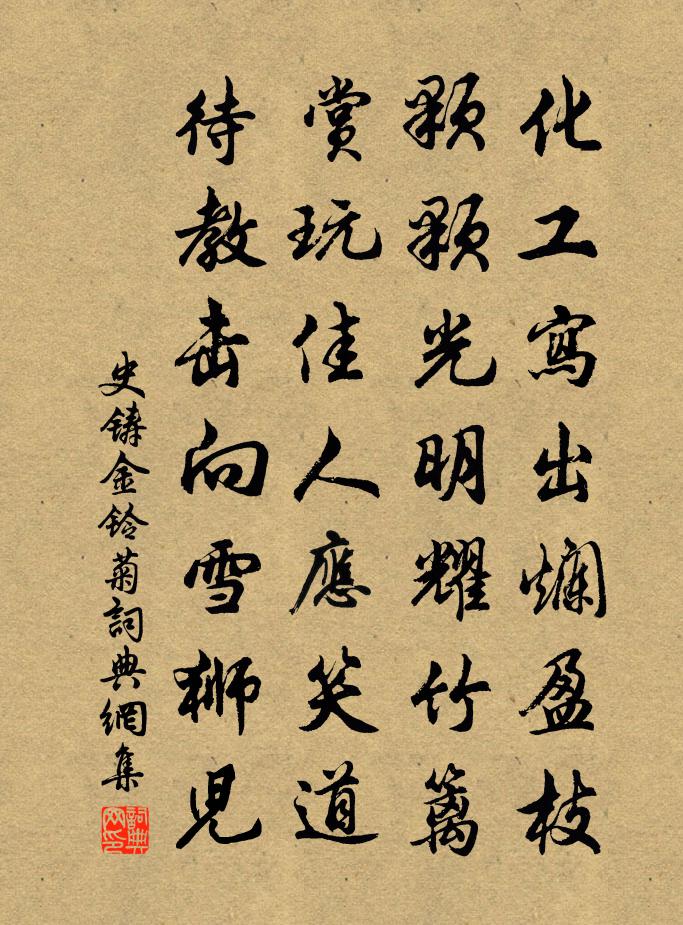 化工寫出爛盈枝
顆顆光明耀竹籬
賞玩佳人應笑道
待教击向雪獅兒
史鑄金鈴菊詞典網集
詞典網印